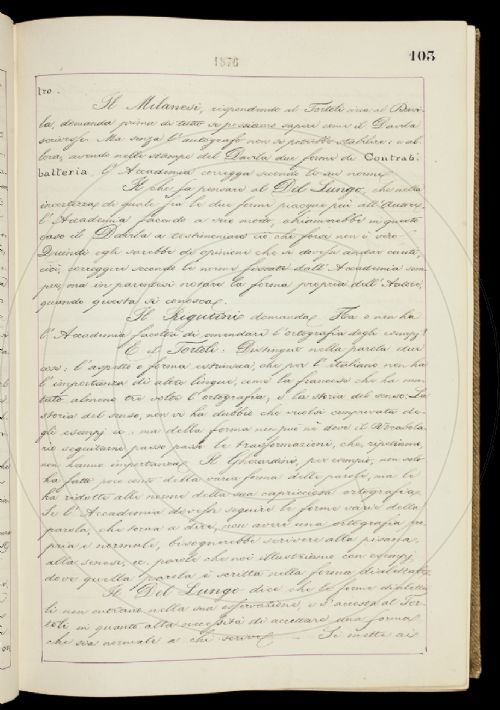 1876
103
tro.
Il Milanesi, rispondendo al Tortoli circa al Davi-
la, domanda prima di tutto se possiamo sapere come il Davila
scrivesse. Ma senza l'autografo non si potrebbe stabilire: e al-
lora, avendo nelle stampe del Davila due forme di Contrab-
batteria l'Accademia corregga secondo le sue norme.
Il che fa pensare al Del Lungo, che nella
incertezza di quale fra le due forme piacque più all'Autore,
l'Accademia facendo a suo modo, obbligherebbe in questo
caso il Davila a testimoniare ciò che forse non è vero.
Quindi egli sarebbe di opinione che si dovesse andar cauti,
cioè, correggere secondo le norme fissate dall'Accademia sem-
pre, ma in parentesi notare la forma propria dell'Autore,
quando questa si conosca.
Il Rigutini domanda: Ha o non ha
l'Accademia facoltà di emendare l'ortografia degli esempj?
E il Tortoli: Distinguo nella parola due
cose: l'aspetto o forma estrinseca; che per l'italiano non ha
l'importanza di altre lingue, come la francese che ha mu-
tato almeno tre volte l'ortografia; e la storia del senso. La
storia del senso, non vi ha dubbio che vuol comprovata da-
gli esempj ec. ma della forma non può nè deve il Vocabola-
rio seguitarne passo passo le trasformazioni, che, ripetiamo,
non hanno importanza. Il Gherardini, per esempio, non solo
ha fatto poco conto della varia forma delle parole, ma le
ha ridotte alle norme della sua capricciosa ortografia.
Se l'Accademia dovesse seguire le forme varie della
parola, che torna a dire, non avere una ortografia pro-
pria e normale, bisognerebbe scrivere alla pisana,
alla senese, ec. parole che noi illustriamo con esempj,
dove quella parola è scritta nella forma dialettale.
Il Del Lungo dice che le forme dialetta-
li non entrano nella sua osservazione, e s'accosta al Tor-
toli in quanto alla necessità di accettare una forma
che sia normale a chi scrive. — Si mette ai